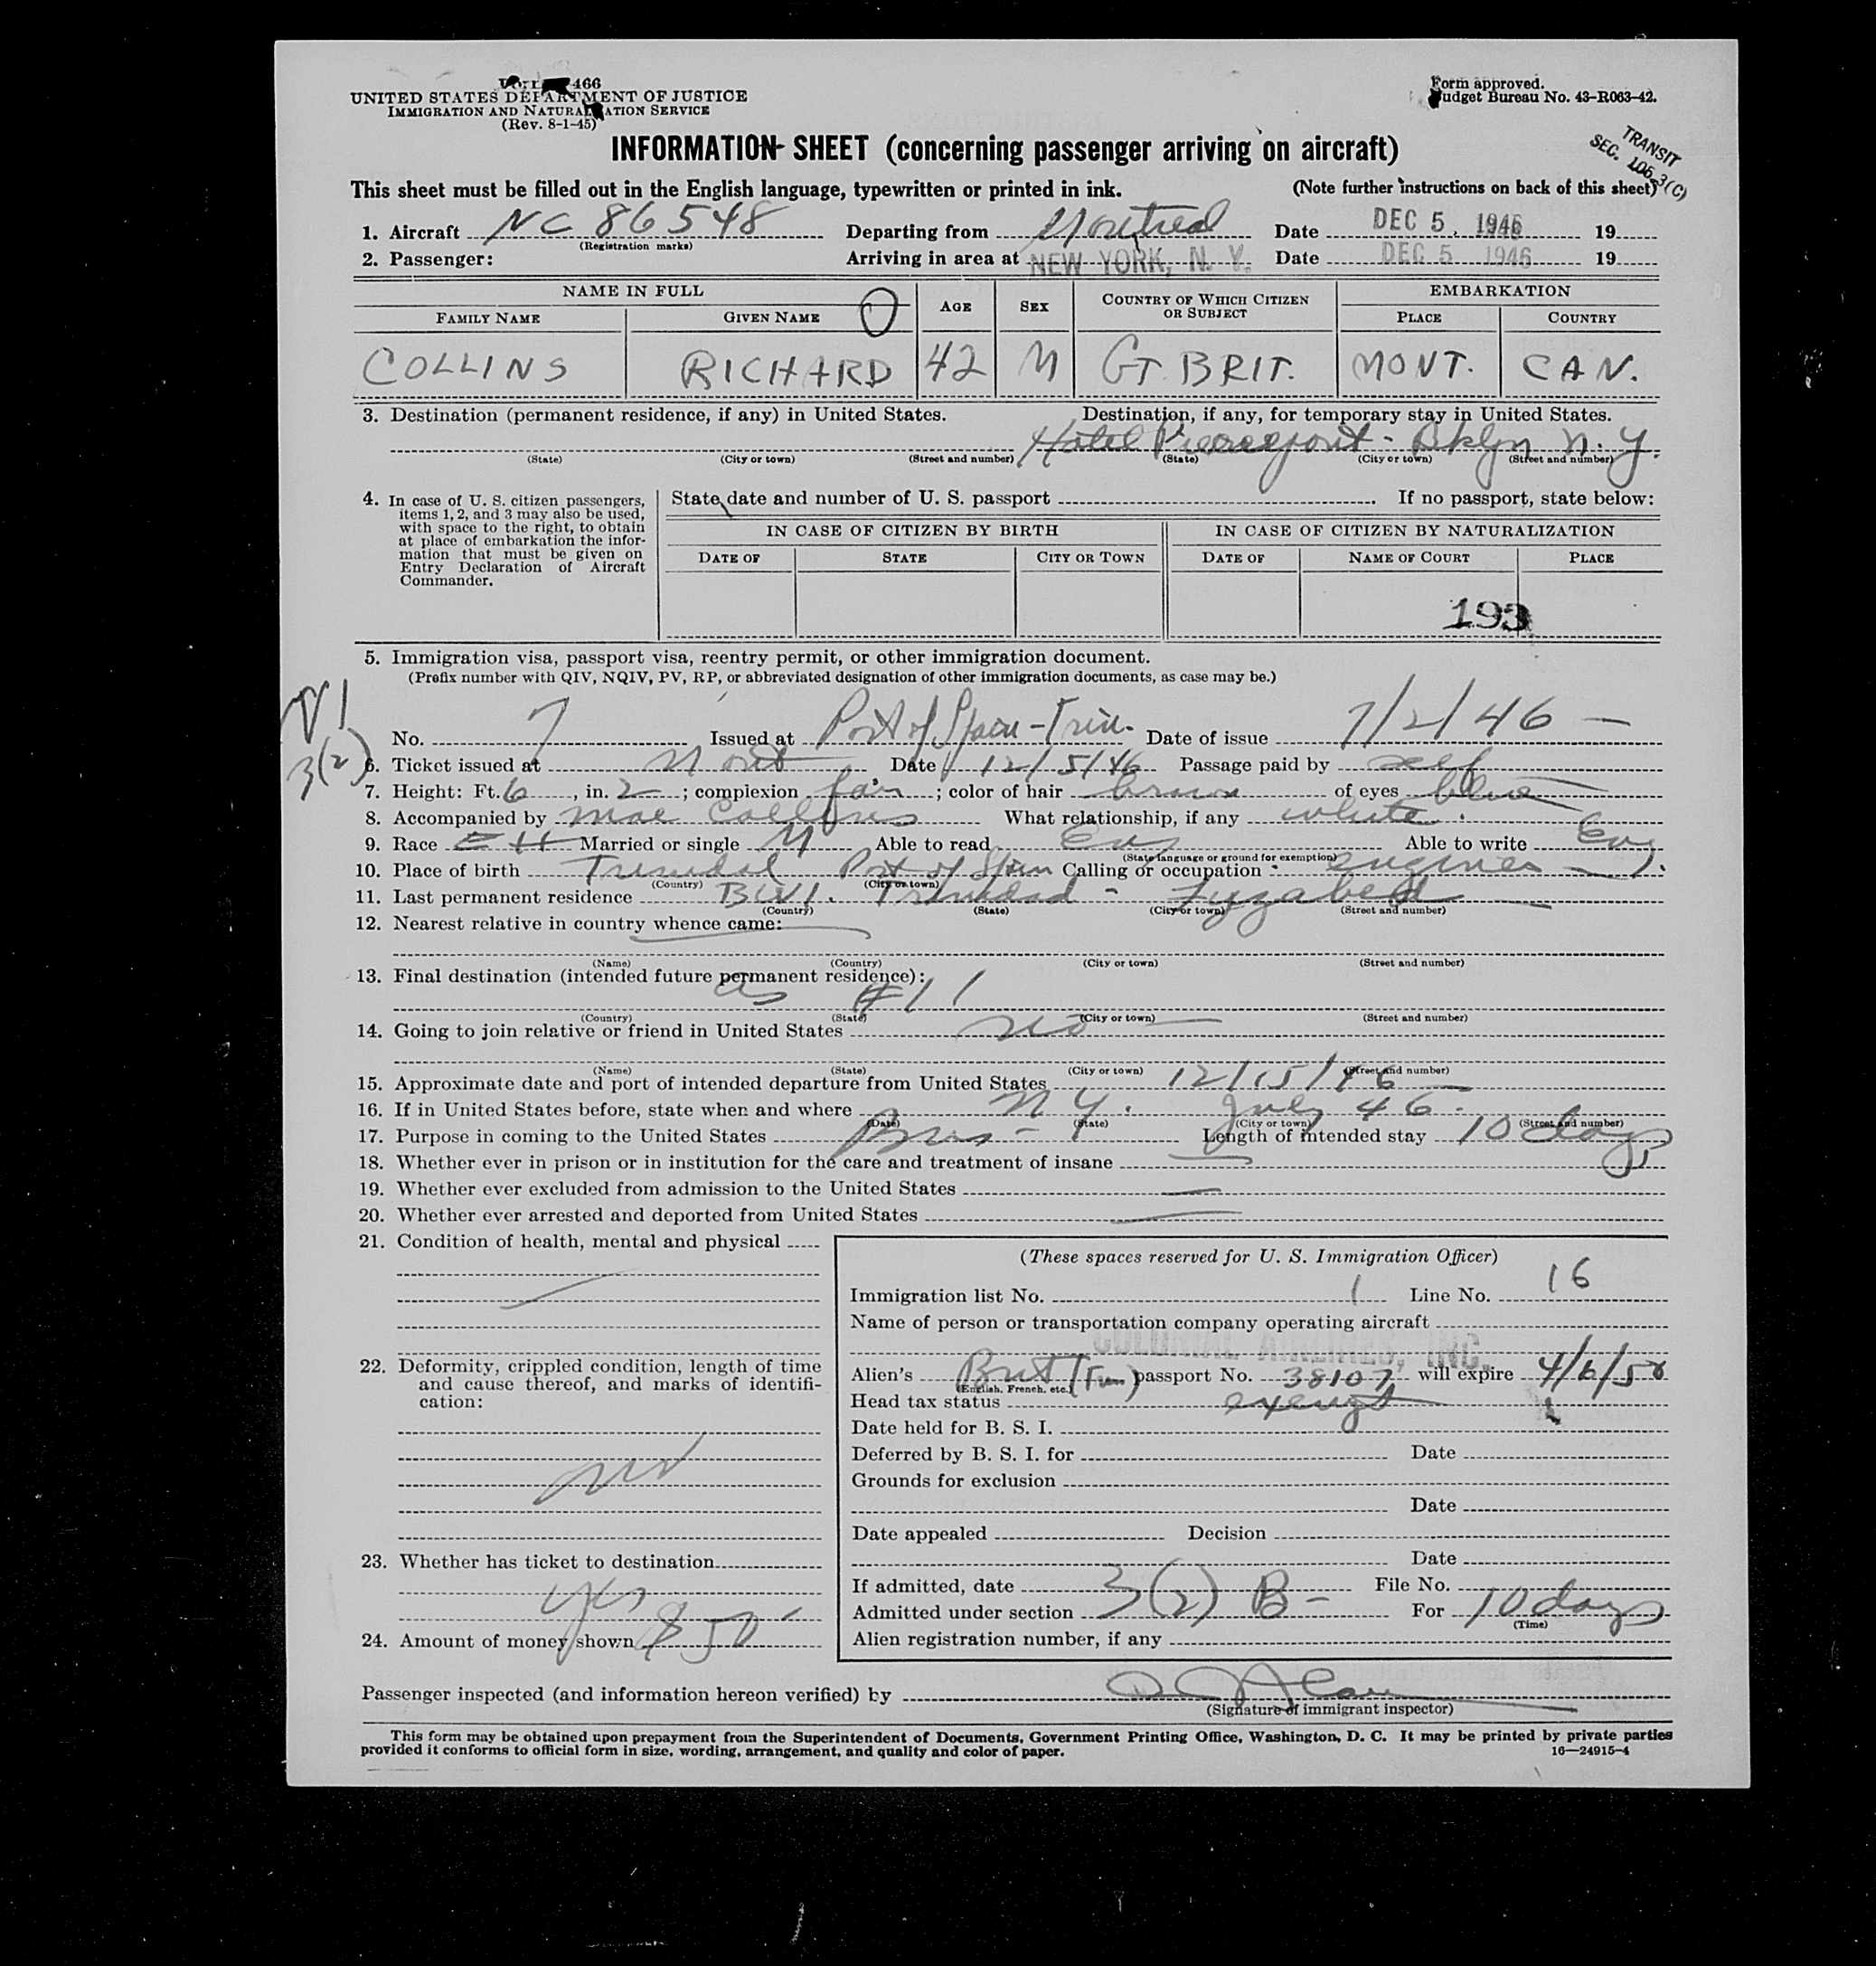 466
UNITED STATES DEPARTMENT OF JUSTICE
IMMIGRATION AND NATURALIZATION SERVICE
(Rev. 8-1-45)
Form approved.
Budget Bureau No. 43-R063-42.
INFORMATION SHEET (concerning passenger arriving on aircraft)
TRANSIT
SEC. 106.3(C)
This sheet must be filled out in the English language, typewritten or printed in ink. (Note further instructions on back of this sheet)
1. Aircraft NC 86548 Departing from Montreal Date DEC 5, 1946 19
(Registration marks)
2. Passenger: Arriving in area at NEW YORK, N. Y. Date DEC 5 1946 19
NAME IN FULL AGE SEX COUNTRY OF WHICH CITIZEN OR SUBJECT EMBARKATION
FAMILY NAME GIVEN NAME PLACE COUNTRY
COLLINS RICHARD 42 M GT. BRIT. MONT. CAN.
3. Destination (permanent residence, if any) in United States. Destination, if any, for temporary stay in United States.
Hotel Pierrepont - Bklyn N. Y.
(State) (City or town) (Street and number) (State) (City or town) (Street and number)
4. In case of U. S. citizen passengers, items 1, 2, and 3 may also be used, with space to the right, to obtain at place of embarkation the information that must be given on Entry Declaration of Aircraft Commander.
State date and number of U. S. passport . If no passport, state below:
IN CASE OF CITIZEN BY BIRTH IN CASE OF CITIZEN BY NATURALIZATION
DATE OF STATE CITY OR TOWN DATE OF NAME OF COURT PLACE
193
5. Immigration visa, passport visa, reentry permit, or other immigration document.
(Prefix number with QIV, NQIV, PV, RP, or abbreviated designation of other immigration documents, as case may be.)
V1
3(2)
No. 7 Issued at Port of Spain - Trin. Date of issue 7/2/46
6. Ticket issued at Mont Date 12/5/46 Passage paid by self
7. Height: Ft. 6, in. 2; complexion fair; color of hair brown of eyes blue
8. Accompanied by Mae Collins What relationship, if any white.
9. Race Married or single M Able to read Eng Able to write Eng
(State language or ground for exemption)
10. Place of birth Trinidad Port of Spain Calling or occupation engineer
(Country) (City or town)
11. Last permanent residence BWI. Trinidad - Fyzabad
(Country) (State) (City or town) (Street and number)
12. Nearest relative in country whence came:
(Name) (Country) (City or town) (Street and number)
13. Final destination (intended future permanent residence):
as #11
(Country) (State) (City or town) (Street and number)
14. Going to join relative or friend in United States no
(Name) (State) (City or town) (Street and number)
15. Approximate date and port of intended departure from United States 12/15/46
16. If in United States before, state when and where N Y. July 46.
(Date) (State) (City or town) (Street and number)
17. Purpose in coming to the United States Bus - Length of intended stay 10 days
18. Whether ever in prison or in institution for the care and treatment of insane
19. Whether ever excluded from admission to the United States
20. Whether ever arrested and deported from United States
21. Condition of health, mental and physical
22. Deformity, crippled condition, length of time and cause thereof, and marks of identification:
23. Whether has ticket to destination
yes
24. Amount of money shown $50
(These spaces reserved for U. S. Immigration Officer)
Immigration list No. 1 Line No. 16
Name of person or transportation company operating aircraft
COLONIAL AIRLINES, INC.
Alien's Brit (Trin) passport No. 38107 will expire 4/6/50
(English, French, etc.)
Head tax status exempt
Date held for B. S. I.
Deferred by B. S. I. for Date
Grounds for exclusion
Date
Date appealed Decision
Date
If admitted, date File No.
Admitted under section 3(2) B - For 10 days
(Time)
Alien registration number, if any
Passenger inspected (and information hereon verified) by
(Signature of immigrant inspector)
This form may be obtained upon prepayment from the Superintendent of Documents, Government Printing Office, Washington, D. C. It may be printed by private parties
provided it conforms to official form in size, wording, arrangement, and quality and color of paper. 16—24915-4